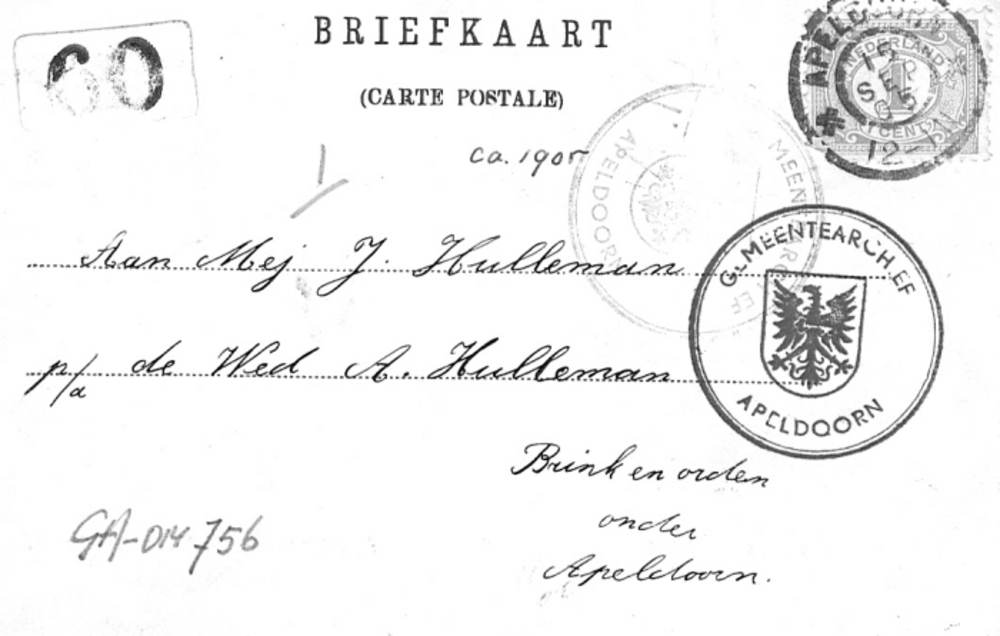 60
BRIEFKAART
(CARTE POSTALE)
ca. 1905
APELDOORN
15 SEP 05
12-1
NEDERLAND
1
1 CENT
GEMEENTEARCHIEF
APELDOORN
GEMEENTEARCHIEF
APELDOORN
Aan Mej J. Hulleman
p/a de Wed A. Hulleman
Brink en orden
onder
Apeldoorn.
GA-014756